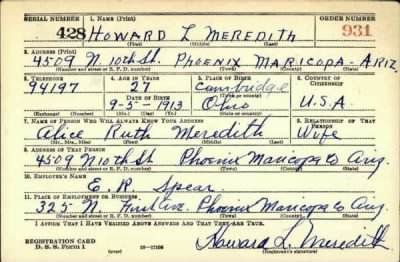 SERIAL NUMBER 1. NAME (Print) ORDER NUMBER
428 HOWARD L MEREDITH 931
(First) (Middle) (Last)
2. ADDRESS (Print)
4509 N 10th St. PHOENIX MARICOPA - ARIZ.
(Number and street or R. F. D. number) (Town) (County) (State)
3. TELEPHONE 4. AGE IN YEARS 5. PLACE OF BIRTH 6. COUNTRY OF CITIZENSHIP
94197 27 Cambridge
DATE OF BIRTH
9-5-1913 Ohio U.S.A.
(Mo.) (Day) (Yr.)
7. NAME OF PERSON WHO WILL ALWAYS KNOW YOUR ADDRESS 8. RELATIONSHIP OF THAT PERSON
Alice Ruth Meredith Wife
(Mr., Mrs., Miss) (First) (Middle) (Last)
9. ADDRESS OF THAT PERSON
4509 N 10th St Phoenix Maricopa Co Ariz.
(Number and street or R. F. D. number) (Town) (County) (State)
10. EMPLOYER'S NAME
E. R. Spear
11. PLACE OF EMPLOYMENT OR BUSINESS
325 N. First Ave. Phoenix Maricopa Co Ariz.
(Number and street or R. F. D. number) (Town) (County) (State)
I AFFIRM THAT I HAVE VERIFIED ABOVE ANSWERS AND THAT THEY ARE TRUE.
REGISTRATION CARD
D. S. S. Form 1 (over) 16-17105 Howard L. Meredith
(Registrant's signature)